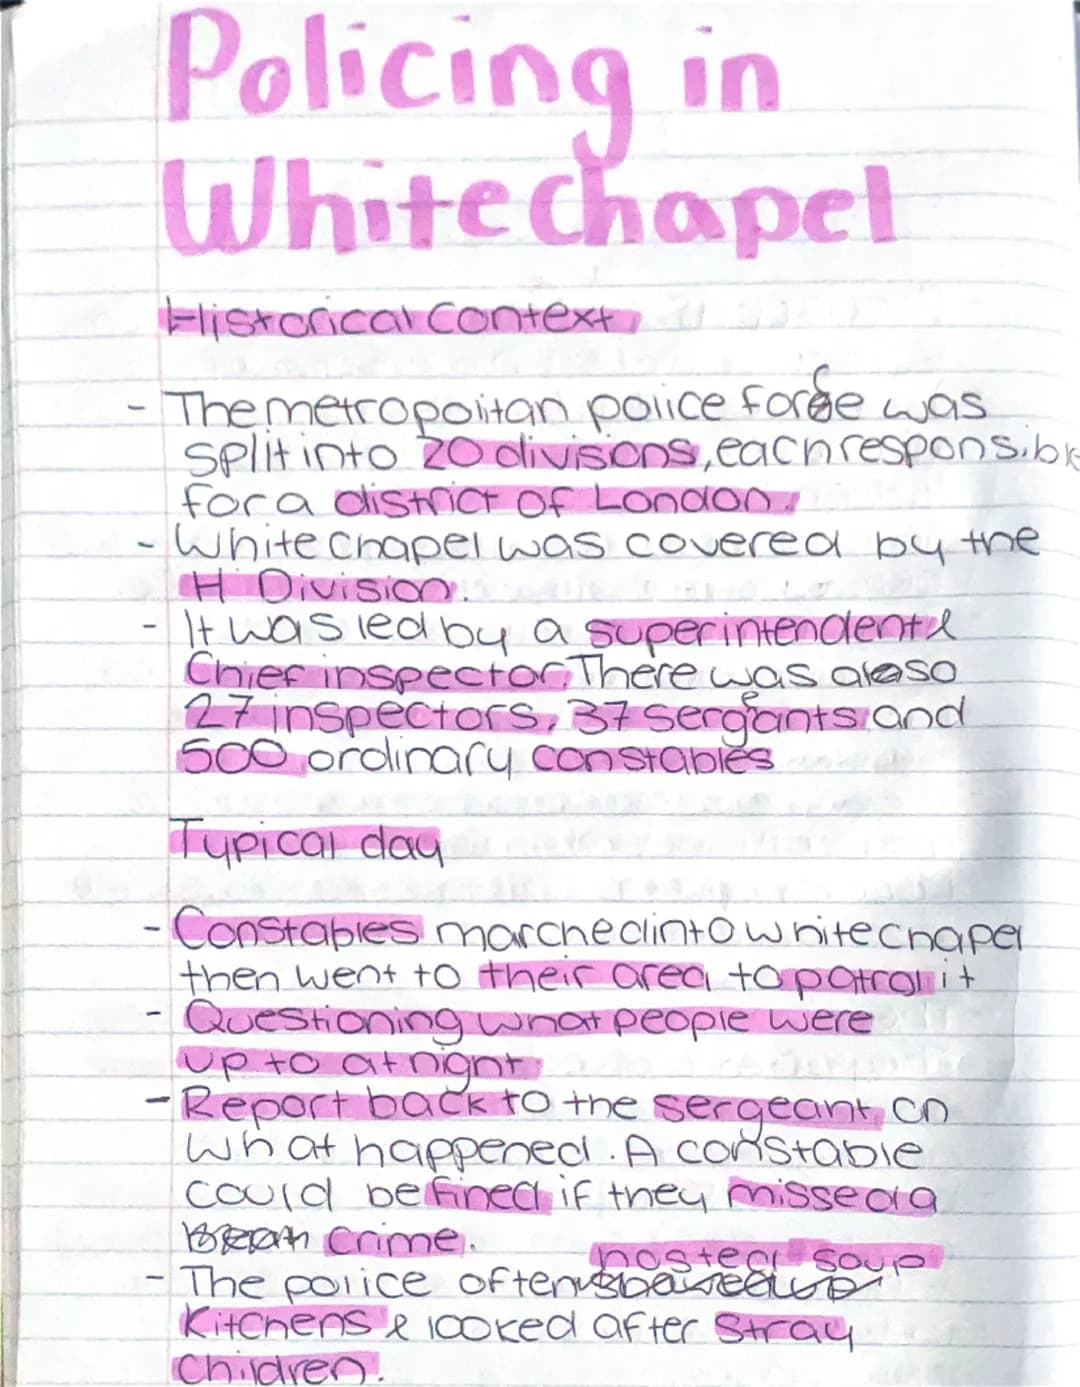 Policing in
Whitechapel
Historical Context
- The metropolitan police force was
split into 20 divisions, each responsible
for a district of London.
- Whitechapel was covered by the
H Division.
- It was led by a superintendent &
Chief inspector. There was also
27 inspectors, 37 sergeants and
500 ordinary constables
Typical day
- Constables marched into whitechapel
then went to their area to patrol it
- Questioning what people were
up to at night.
- Report back to the sergeant on
what happened. A constable
could be fined if they missed a
crime.
hosted soup
- The police often
Kitchens & looked after stray
Children.